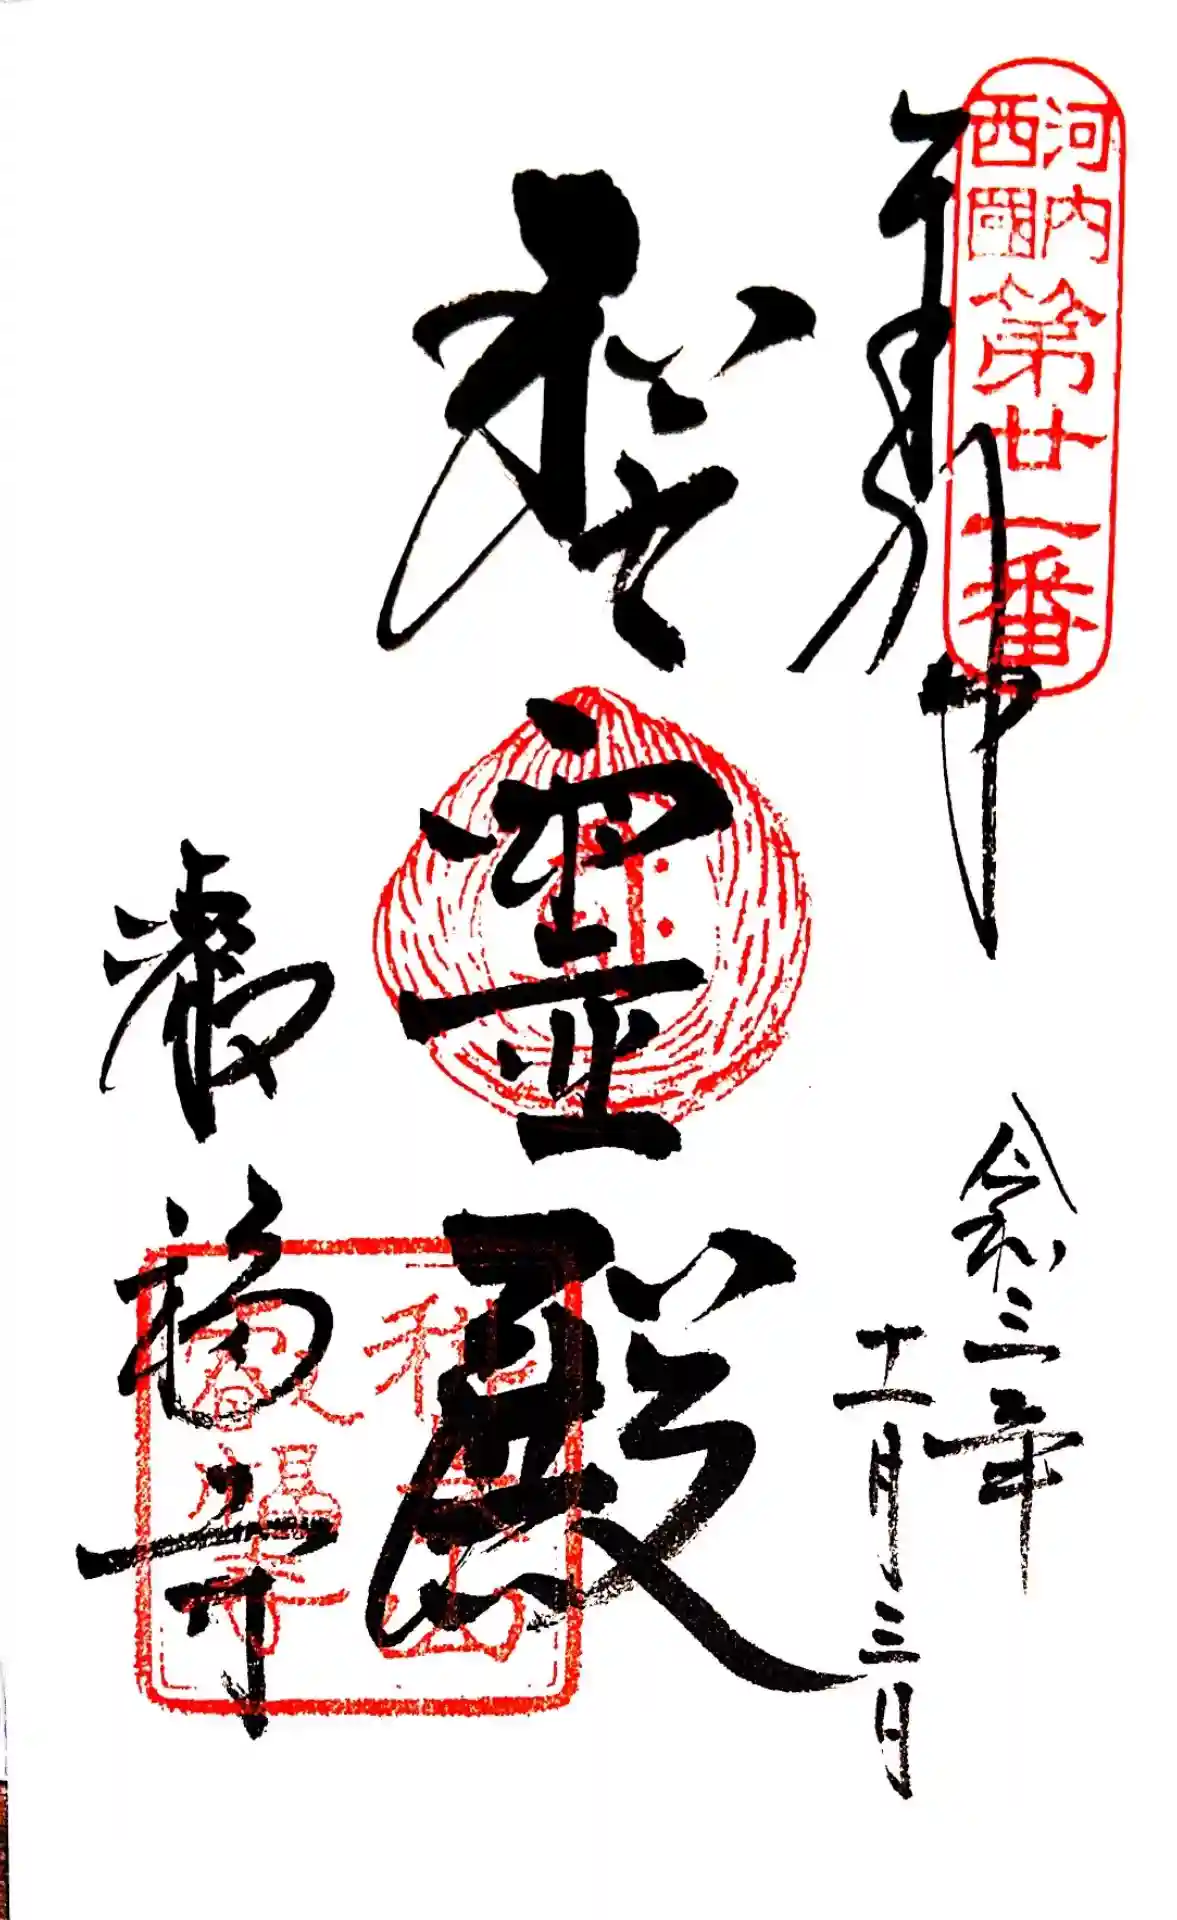 河内
西國
第廿一番
奉拝
令和三年
十一月三日
聖霊殿
叡福寺
科長山
叡福寺